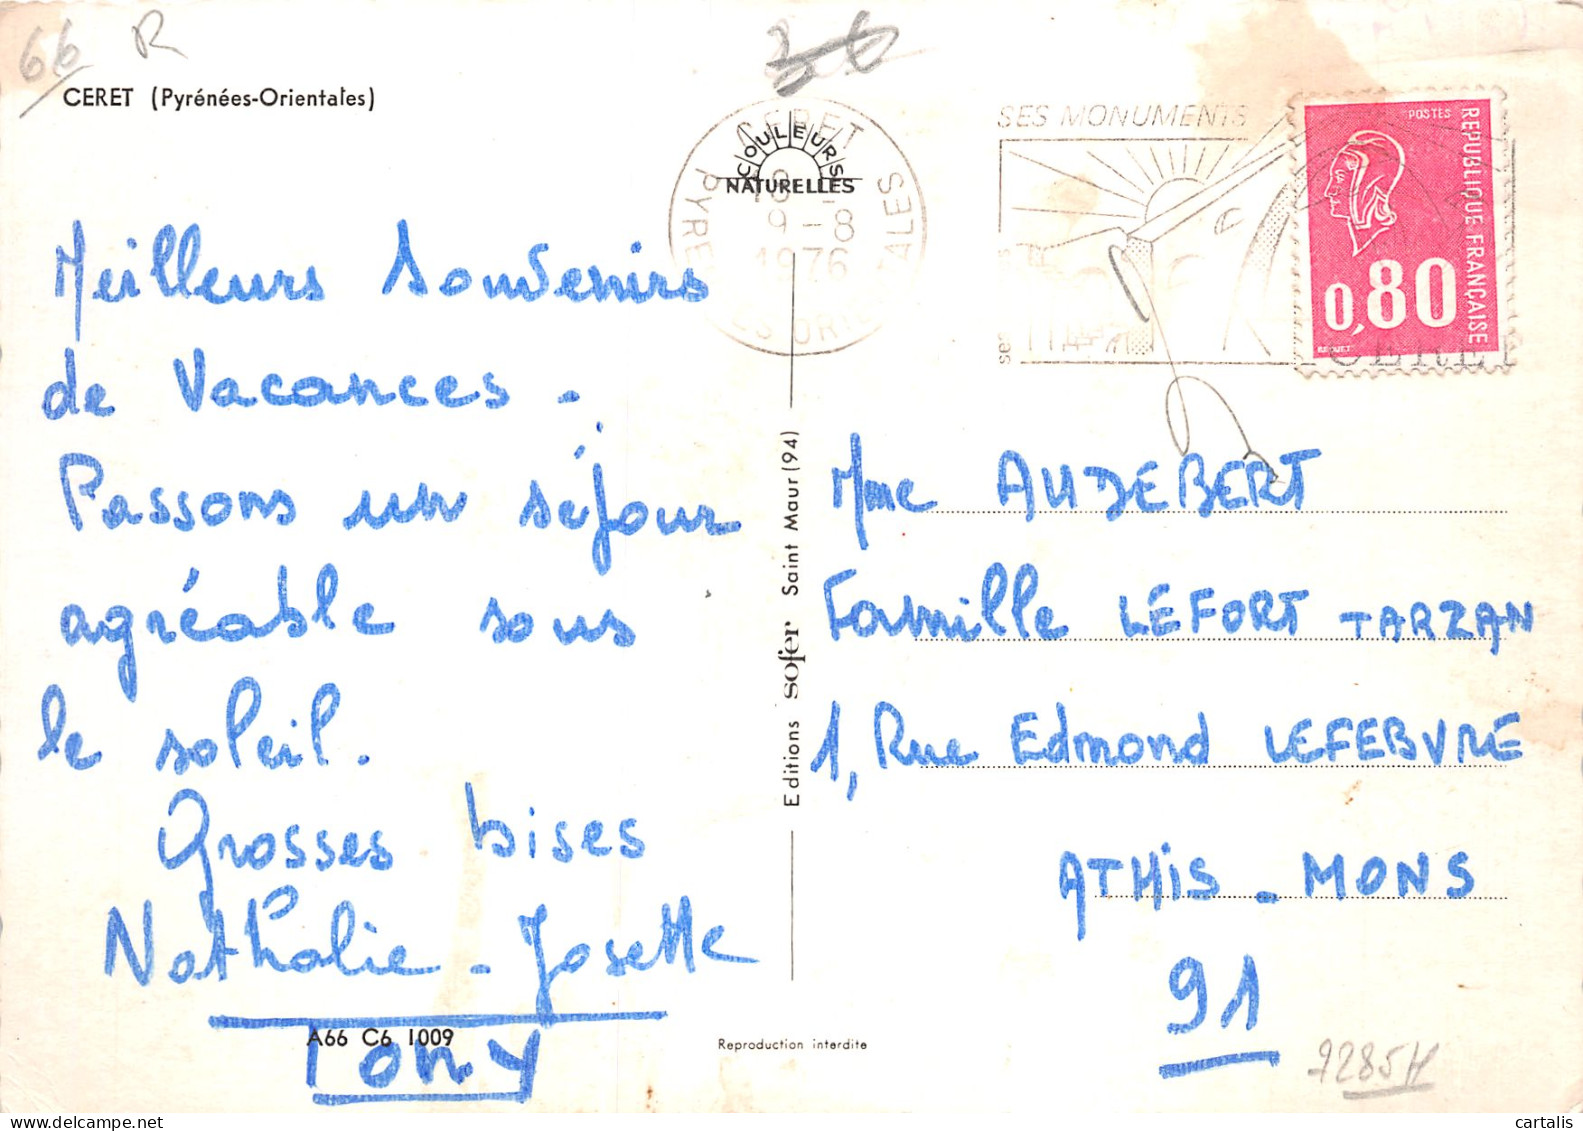 66 R
36
CERET (Pyrénées-Orientales)
COULEURS
NATURELLES
CERET
9-8
1976
SES MONUMENTS
CERET
POSTES
REPUBLIQUE FRANÇAISE
0,80
BEQUET
Meilleurs Souvenirs
de Vacances.
Passons un séjour
agréable sous
le soleil.
Grosses bises
Nathalie - Josette
Tony
A66 C6 1009
Editions sofer Saint Maur (94)
Mme AUDEBERT
Famille LEFORT TARZAN
1, Rue Edmond LEFEBVRE
ATHIS - MONS
91
Reproduction interdite
7285H
cartalis